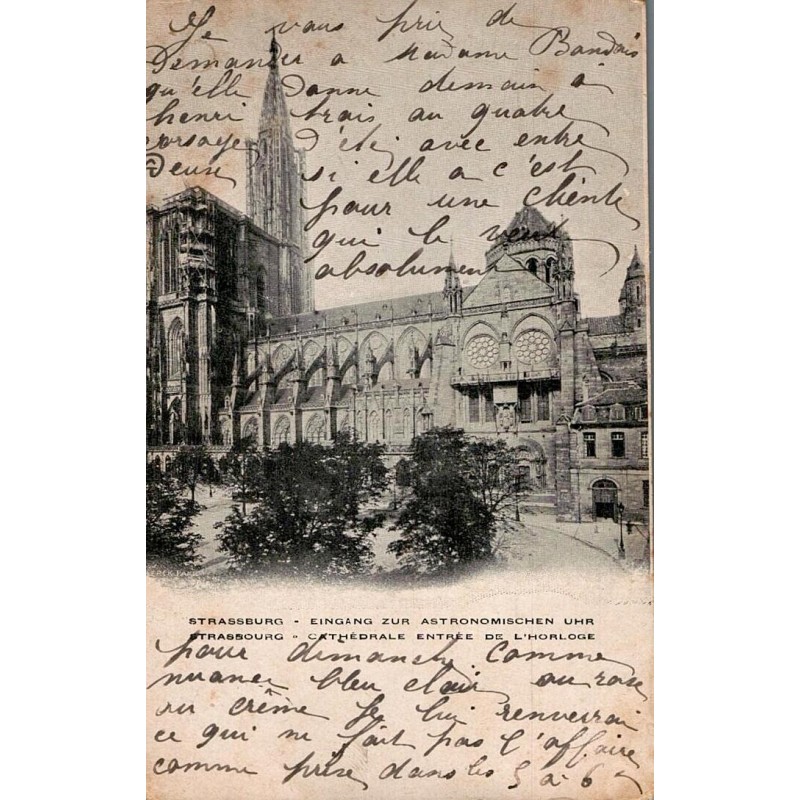 Je vous prie de
Demander a Madame Bandais
qu'elle Donne demain à
henri trois au quatre
corsages d'été avec entre
Deux si elle a c'est
pour une cliente
qui le veux
absolument
STRASSBURG - EINGANG ZUR ASTRONOMISCHEN UHR
STRASBOURG - CATHÉDRALE ENTRÉE DE L'HORLOGE
pour dimanche comme
nuance bleu clair ou rose
ou crême je lui renverrai
ce qui ne fait pas l'affaire
comme prix dans les 5 a 6